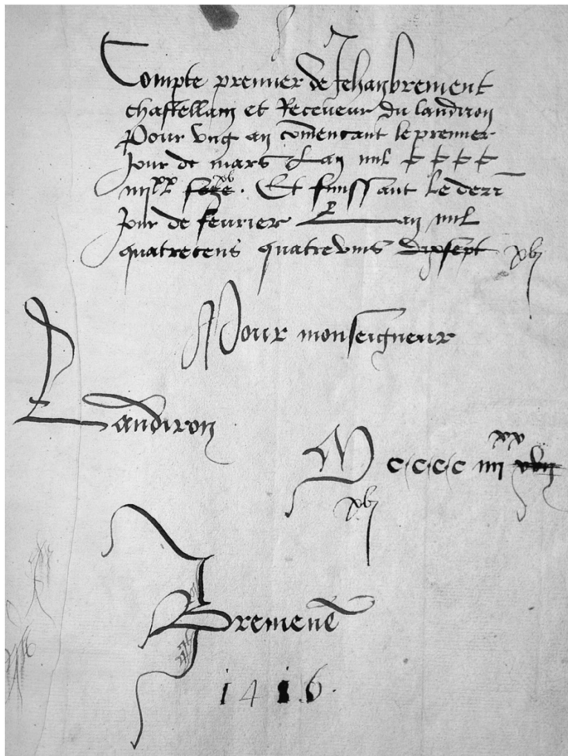 Compte premier de Jehan brement
chastellain et Receveur du landiron
Pour ung an comencant le premier
jour de mars Lan mil
iiijxx xv. Et finissant le derr
jour de fevrier Lan mil
quatrecens quatrevins dixsept xvj
Pour monseigneur
Landiron
M cccc iiij xx xvij
xvj
J Bremene
1416